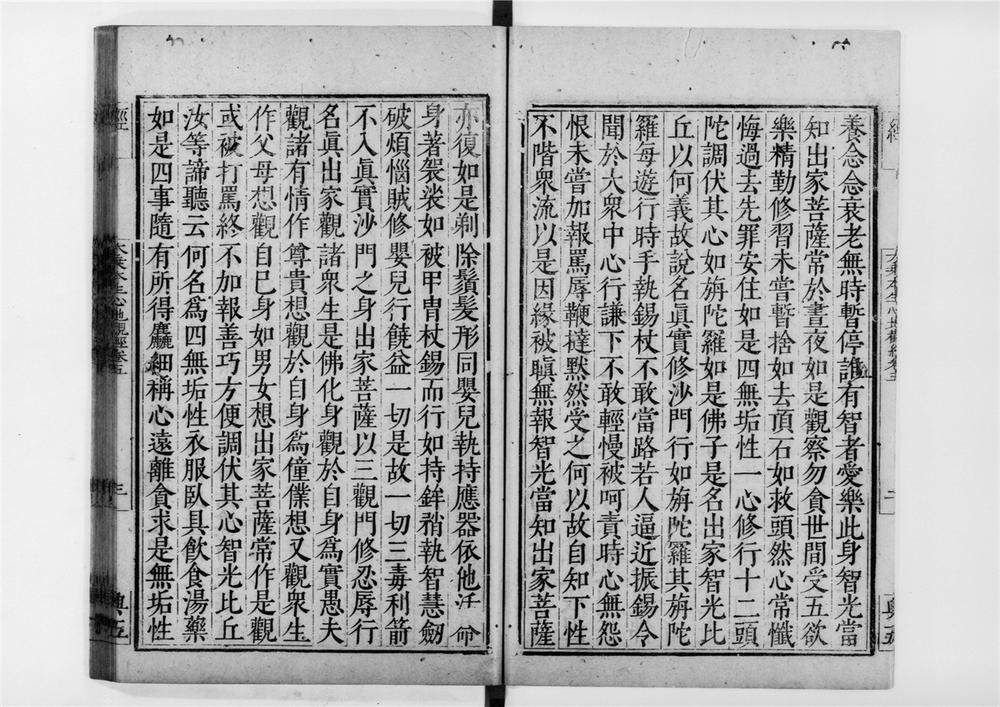 養念念衰老無時暫停誰有智者愛樂此身智光當
知出家菩薩常於晝夜如是觀察勿貪世間受五欲
樂精勤修習未嘗暫捨如去頂石如救頭然心常懺
悔過去先罪安住如是四無垢性一心修行十二頭
陀調伏其心如旃陀羅如是佛子是名出家智光比
丘以何義故說名真實修沙門行如旃陀羅其旃陀
羅每遊行時手執錫杖不敢當路若人逼近振錫令
聞於大衆中心行謙下不敢輕慢被呵責時心無怨
恨未嘗加報罵辱鞭撻默然受之何以故自知下性
不階衆流以是因緣被瞋無報智光當知出家菩薩
亦復如是剃除鬚髮形同嬰兒執持應器依他活命
身著袈裟如被甲冑杖錫而行如持鉾矟執智慧劒
破煩惱賊修嬰兒行饒益一切是故一切三毒利箭
不入眞實沙門之身出家菩薩以三觀門修忍辱行
名眞出家觀諸衆生是佛化身觀於自身爲實愚夫
觀諸有情作尊貴想觀於自身爲僮僕想又觀衆生
作父母想觀自已身如男女想出家菩薩常作是觀
或被打罵終不加報善巧方便調伏其心智光比丘
汝等諦聽云何名爲四無垢性衣服臥具飲食湯藥
如是四事隨有所得麤細稱心遠離貪求是無垢性
經
大乘本生心地觀經卷五
三